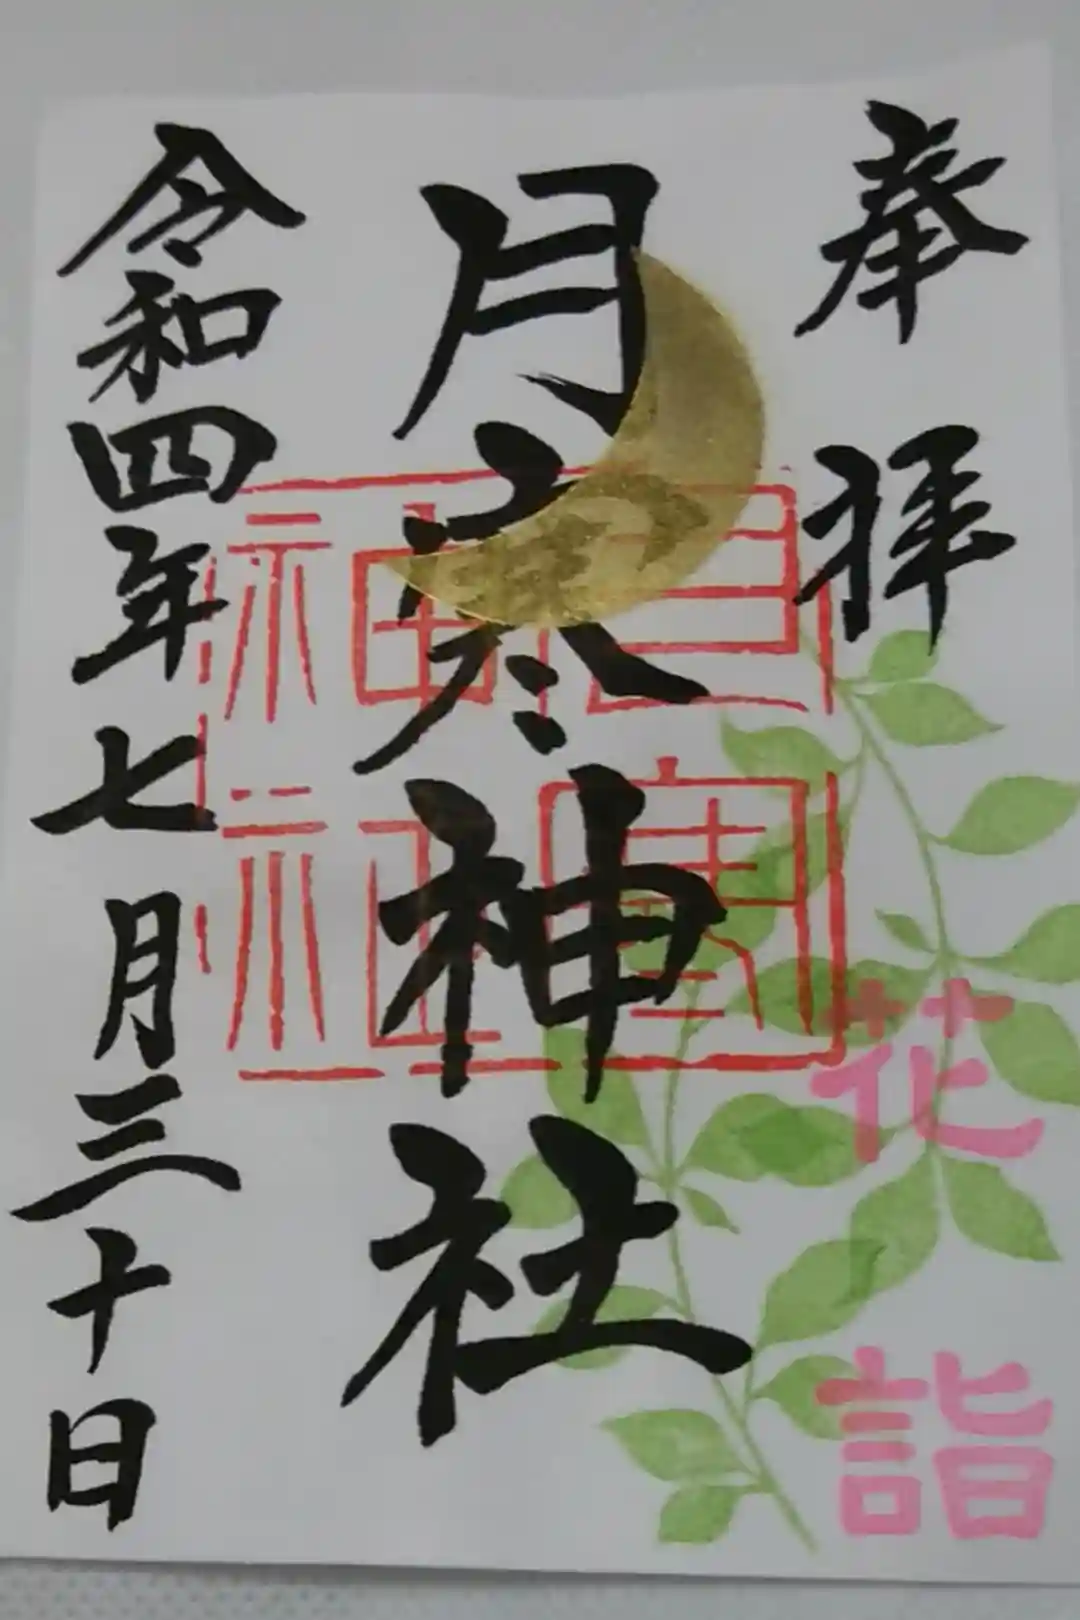 奉拝
月寒神社
月寒神社
令和四年七月三十日
花詣